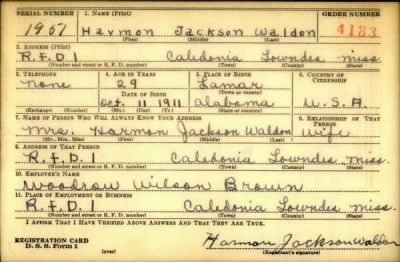 SERIAL NUMBER 1. NAME (Print) ORDER NUMBER
1951 Harmon Jackson Waldon 4133
(First) (Middle) (Last)
2. ADDRESS (Print)
R.F.D 1 Caledonia Lowndes Miss
(Number and street or R. F. D. number) (Town) (County) (State)
3. TELEPHONE 4. AGE IN YEARS 5. PLACE OF BIRTH 6. COUNTRY OF CITIZENSHIP
None 29 Lamar
DATE OF BIRTH (Town or county)
Oct. 11 1911 Alabama U.S.A.
(Exchange) (Number) (Mo.) (Day) (Yr.) (State or country)
7. NAME OF PERSON WHO WILL ALWAYS KNOW YOUR ADDRESS 8. RELATIONSHIP OF THAT PERSON
Mrs. Harmon Jackson Waldon Wife
(Mr., Mrs., Miss) (First) (Middle) (Last)
9. ADDRESS OF THAT PERSON
R.F.D. 1 Caledonia Lowndes Miss.
(Number and street or R. F. D. number) (Town) (County) (State)
10. EMPLOYER'S NAME
Woodrow Wilson Brown
11. PLACE OF EMPLOYMENT OR BUSINESS
R.F.D. 1 Caledonia Lowndes Miss.
(Number and street or R. F. D. number) (Town) (County) (State)
I AFFIRM THAT I HAVE VERIFIED ABOVE ANSWERS AND THAT THEY ARE TRUE.
REGISTRATION CARD
D. S. S. Form 1 (over) Harmon Jackson Waldon
(Registrant's signature)